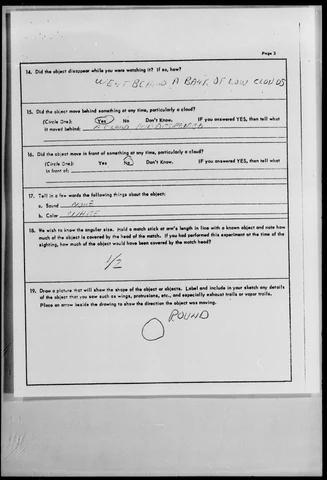 Page 3
14. Did the object disappear while you were watching it? If so, how?
WENT BEHIND A BANK OF LOW CLOUDS
15. Did the object move behind something at any time, particularly a cloud?
(Circle One): Yes No Don't Know. IF you answered YES, then tell what
it moved behind: A CLOUD
16. Did the object move in front of something at any time, particularly a cloud?
(Circle One): Yes No Don't Know. IF you answered YES, then tell what
in front of:
17. Tell in a few words the following things about the object:
a. Sound NONE
b. Color WHITE
18. We wish to know the angular size. Hold a match stick at arm's length in line with a known object and note how
much of the object is covered by the head of the match. If you had performed this experiment at the time of the
sighting, how much of the object would have been covered by the match head?
1/2
19. Draw a picture that will show the shape of the object or objects. Label and include in your sketch any details
of the object that you saw such as wings, protrusions, etc., and especially exhaust trails or vapor trails.
Place an arrow beside the drawing to show the direction the object was moving.
ROUND